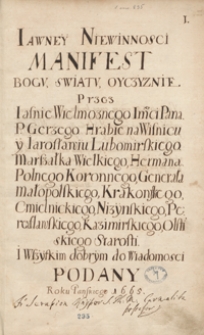 1.
IAWNEY NIEWINNOSCI
MANIFEST
BOGV, SWIATV, OYCZYZNIE
PRZEZ
Iasnie Wielmoznego Imći Pana
P. Gerzego Hrabie na Wisniczu
y Iarosławiu Lubomirskiego
Marszałka Wielkiego, Hetmana
Polnego Koronnego, Generała
Małopolskiego, Krakowskiego,
Chmielnickiego, Niżynskiego, Pe-
resławskiego, Kazimirskiego, Olsz-
skiego Starosti.
i Wszystkim dobrym do Wiadomosci
PODANY
Roku Panskiego 1668.